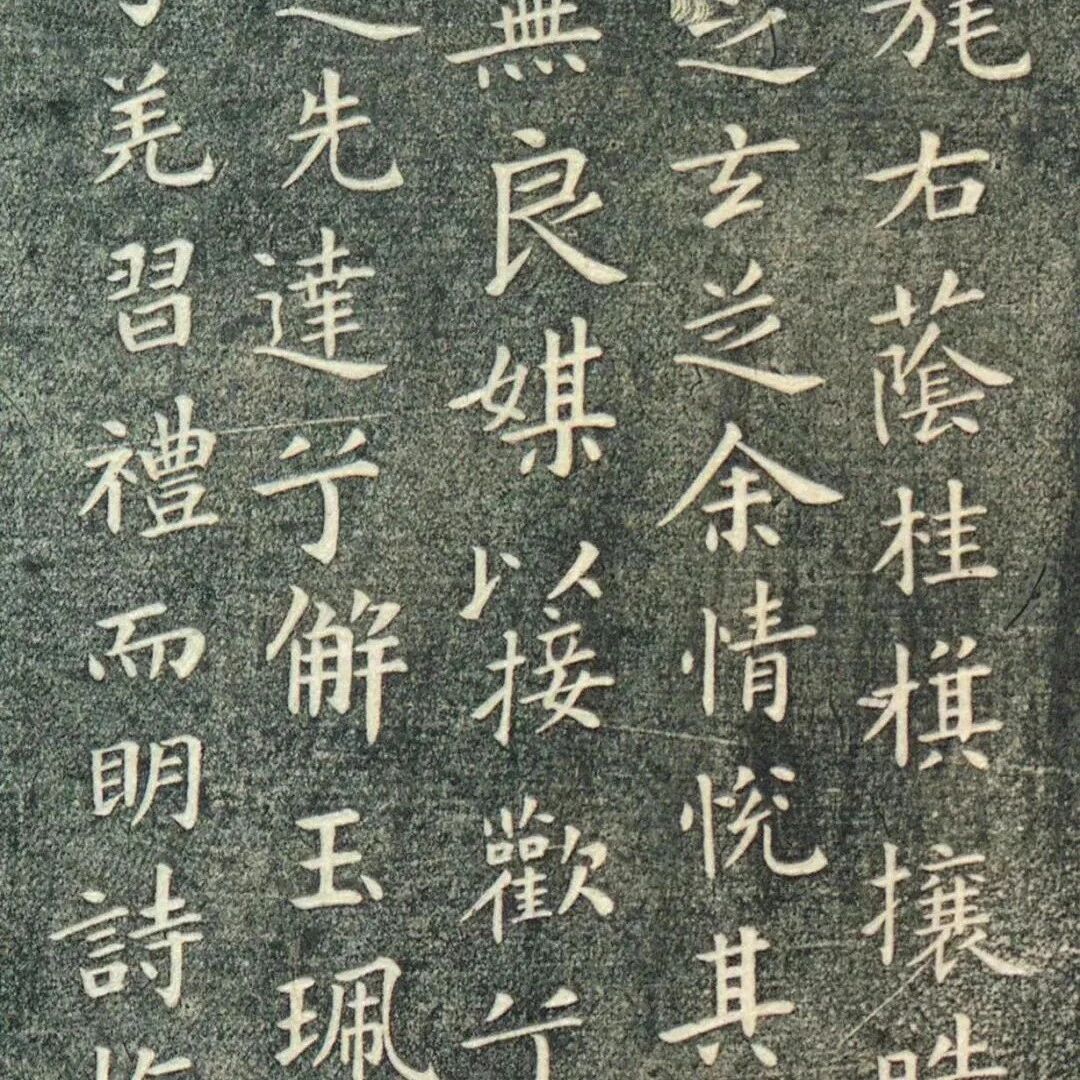 旄右蔭桂旗攘皓
之玄芝余情悅其
無良媒以接歡兮
之先達兮解玉珮
羌習禮而明詩